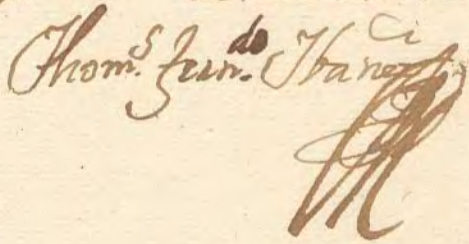 Thom.s Fern.do Ibanez